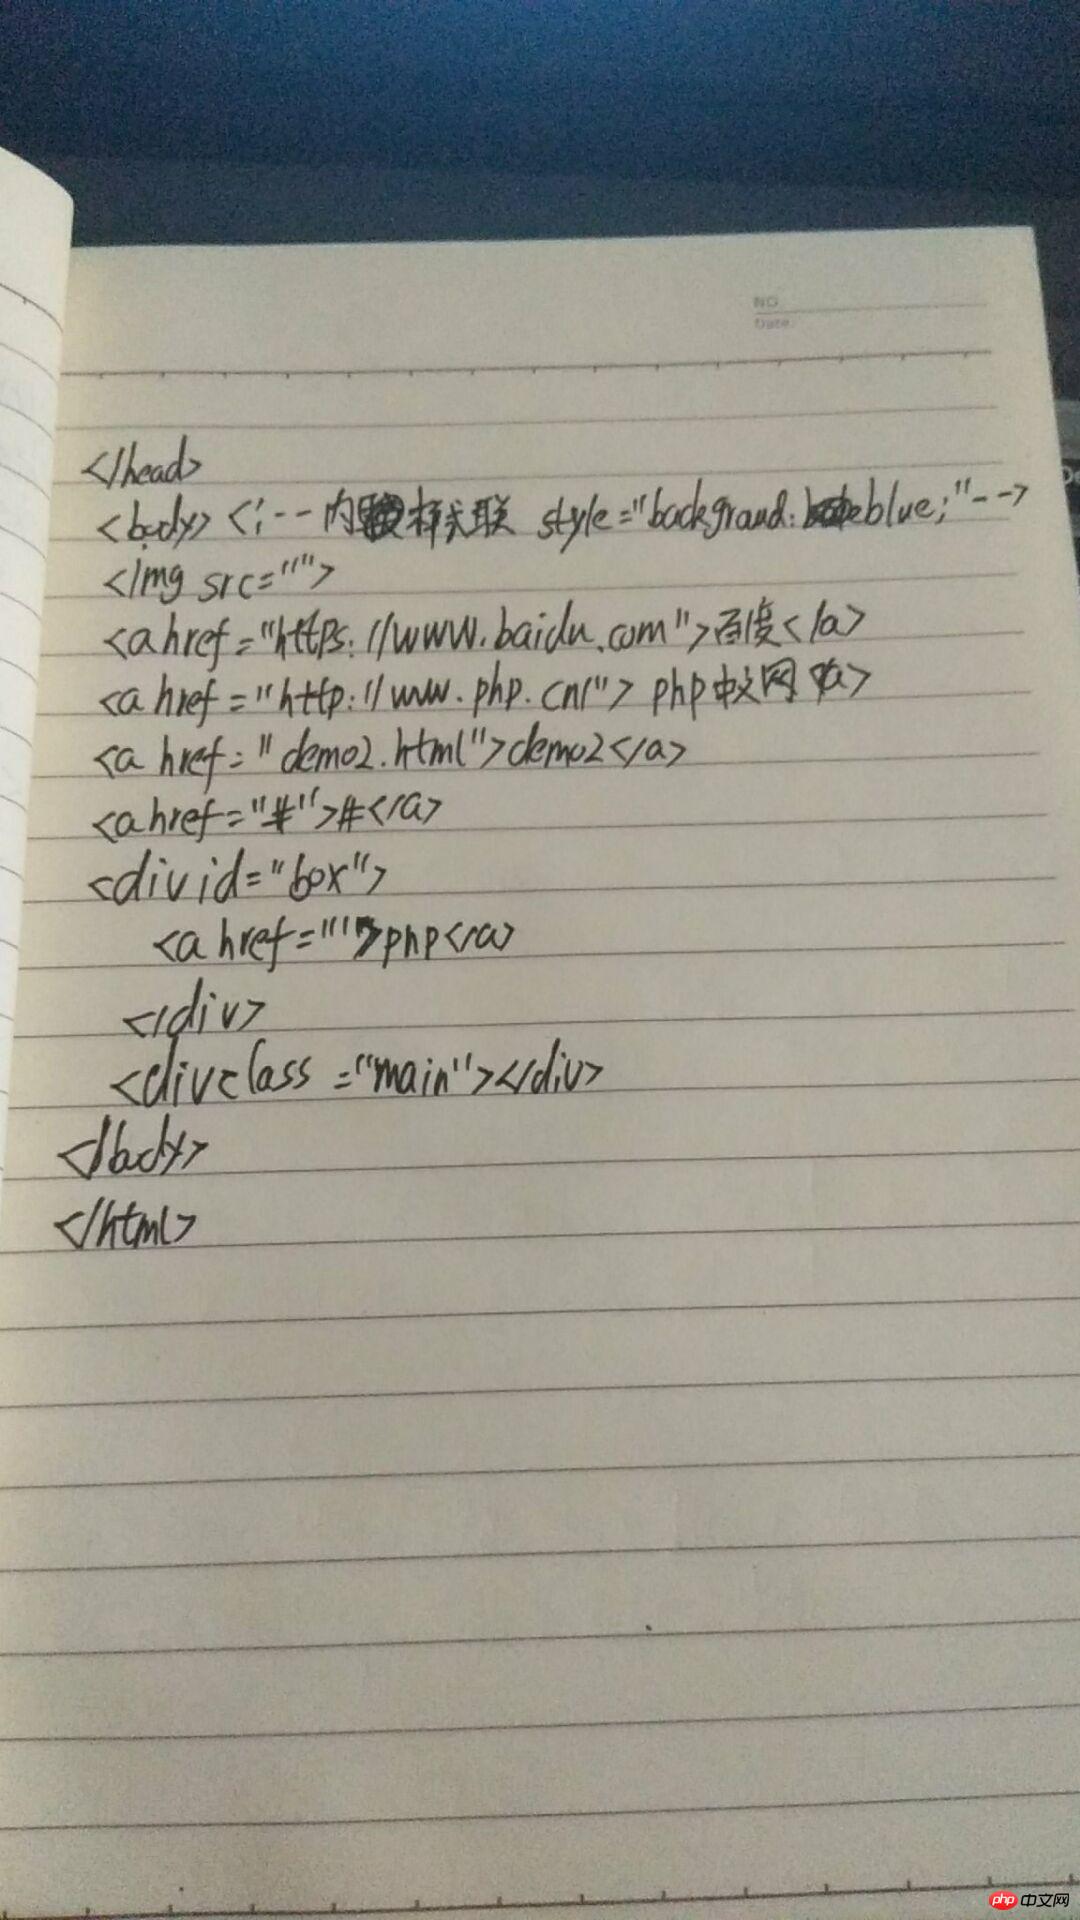 NO
Date.
</head>
<body> <!-- 内样式联 style="backgraund: blue;"-->
<img src="">
<a href="https://www.baidu.com">百度</a>
<a href="http://www.php.cn/"> php中文网</a>
<a href="demo2.html">demo2</a>
<a href="#">#</a>
<div id="box">
<a href="">php</a>
</div>
<div class="main"></div>
</body>
</html>
php 中文网